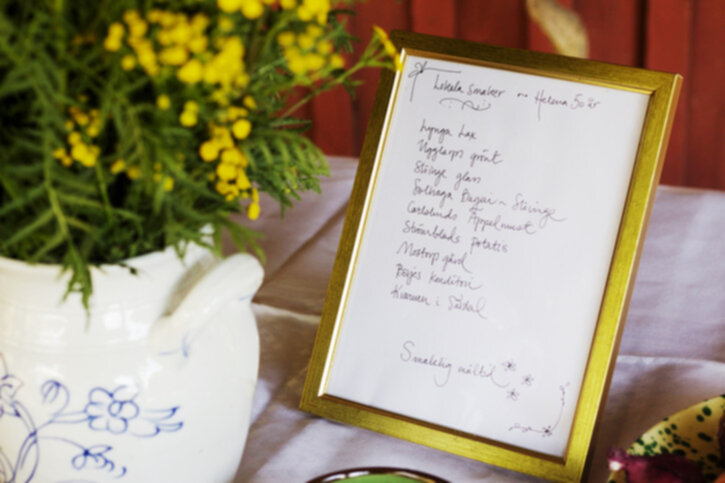 Lokala smaker ~ Helena 50 år
Lynga Lax
Ugglarps grönt
Slöinge glass
Solhaga Bageri ~ Slöinge
Carlslunds Äppelmust
Strömblads potatis
Mostorp gård
Bojes konditori
Kvarnen i
Smaklig måltid